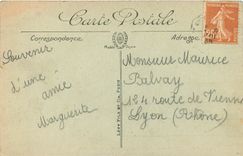 Carte Postale
Correspondance
Adresse
Souvenir
d'une
amie
Marguerite
Monsieur Maurice
Balvay
124 route de Vienne
Lyon (Rhône)